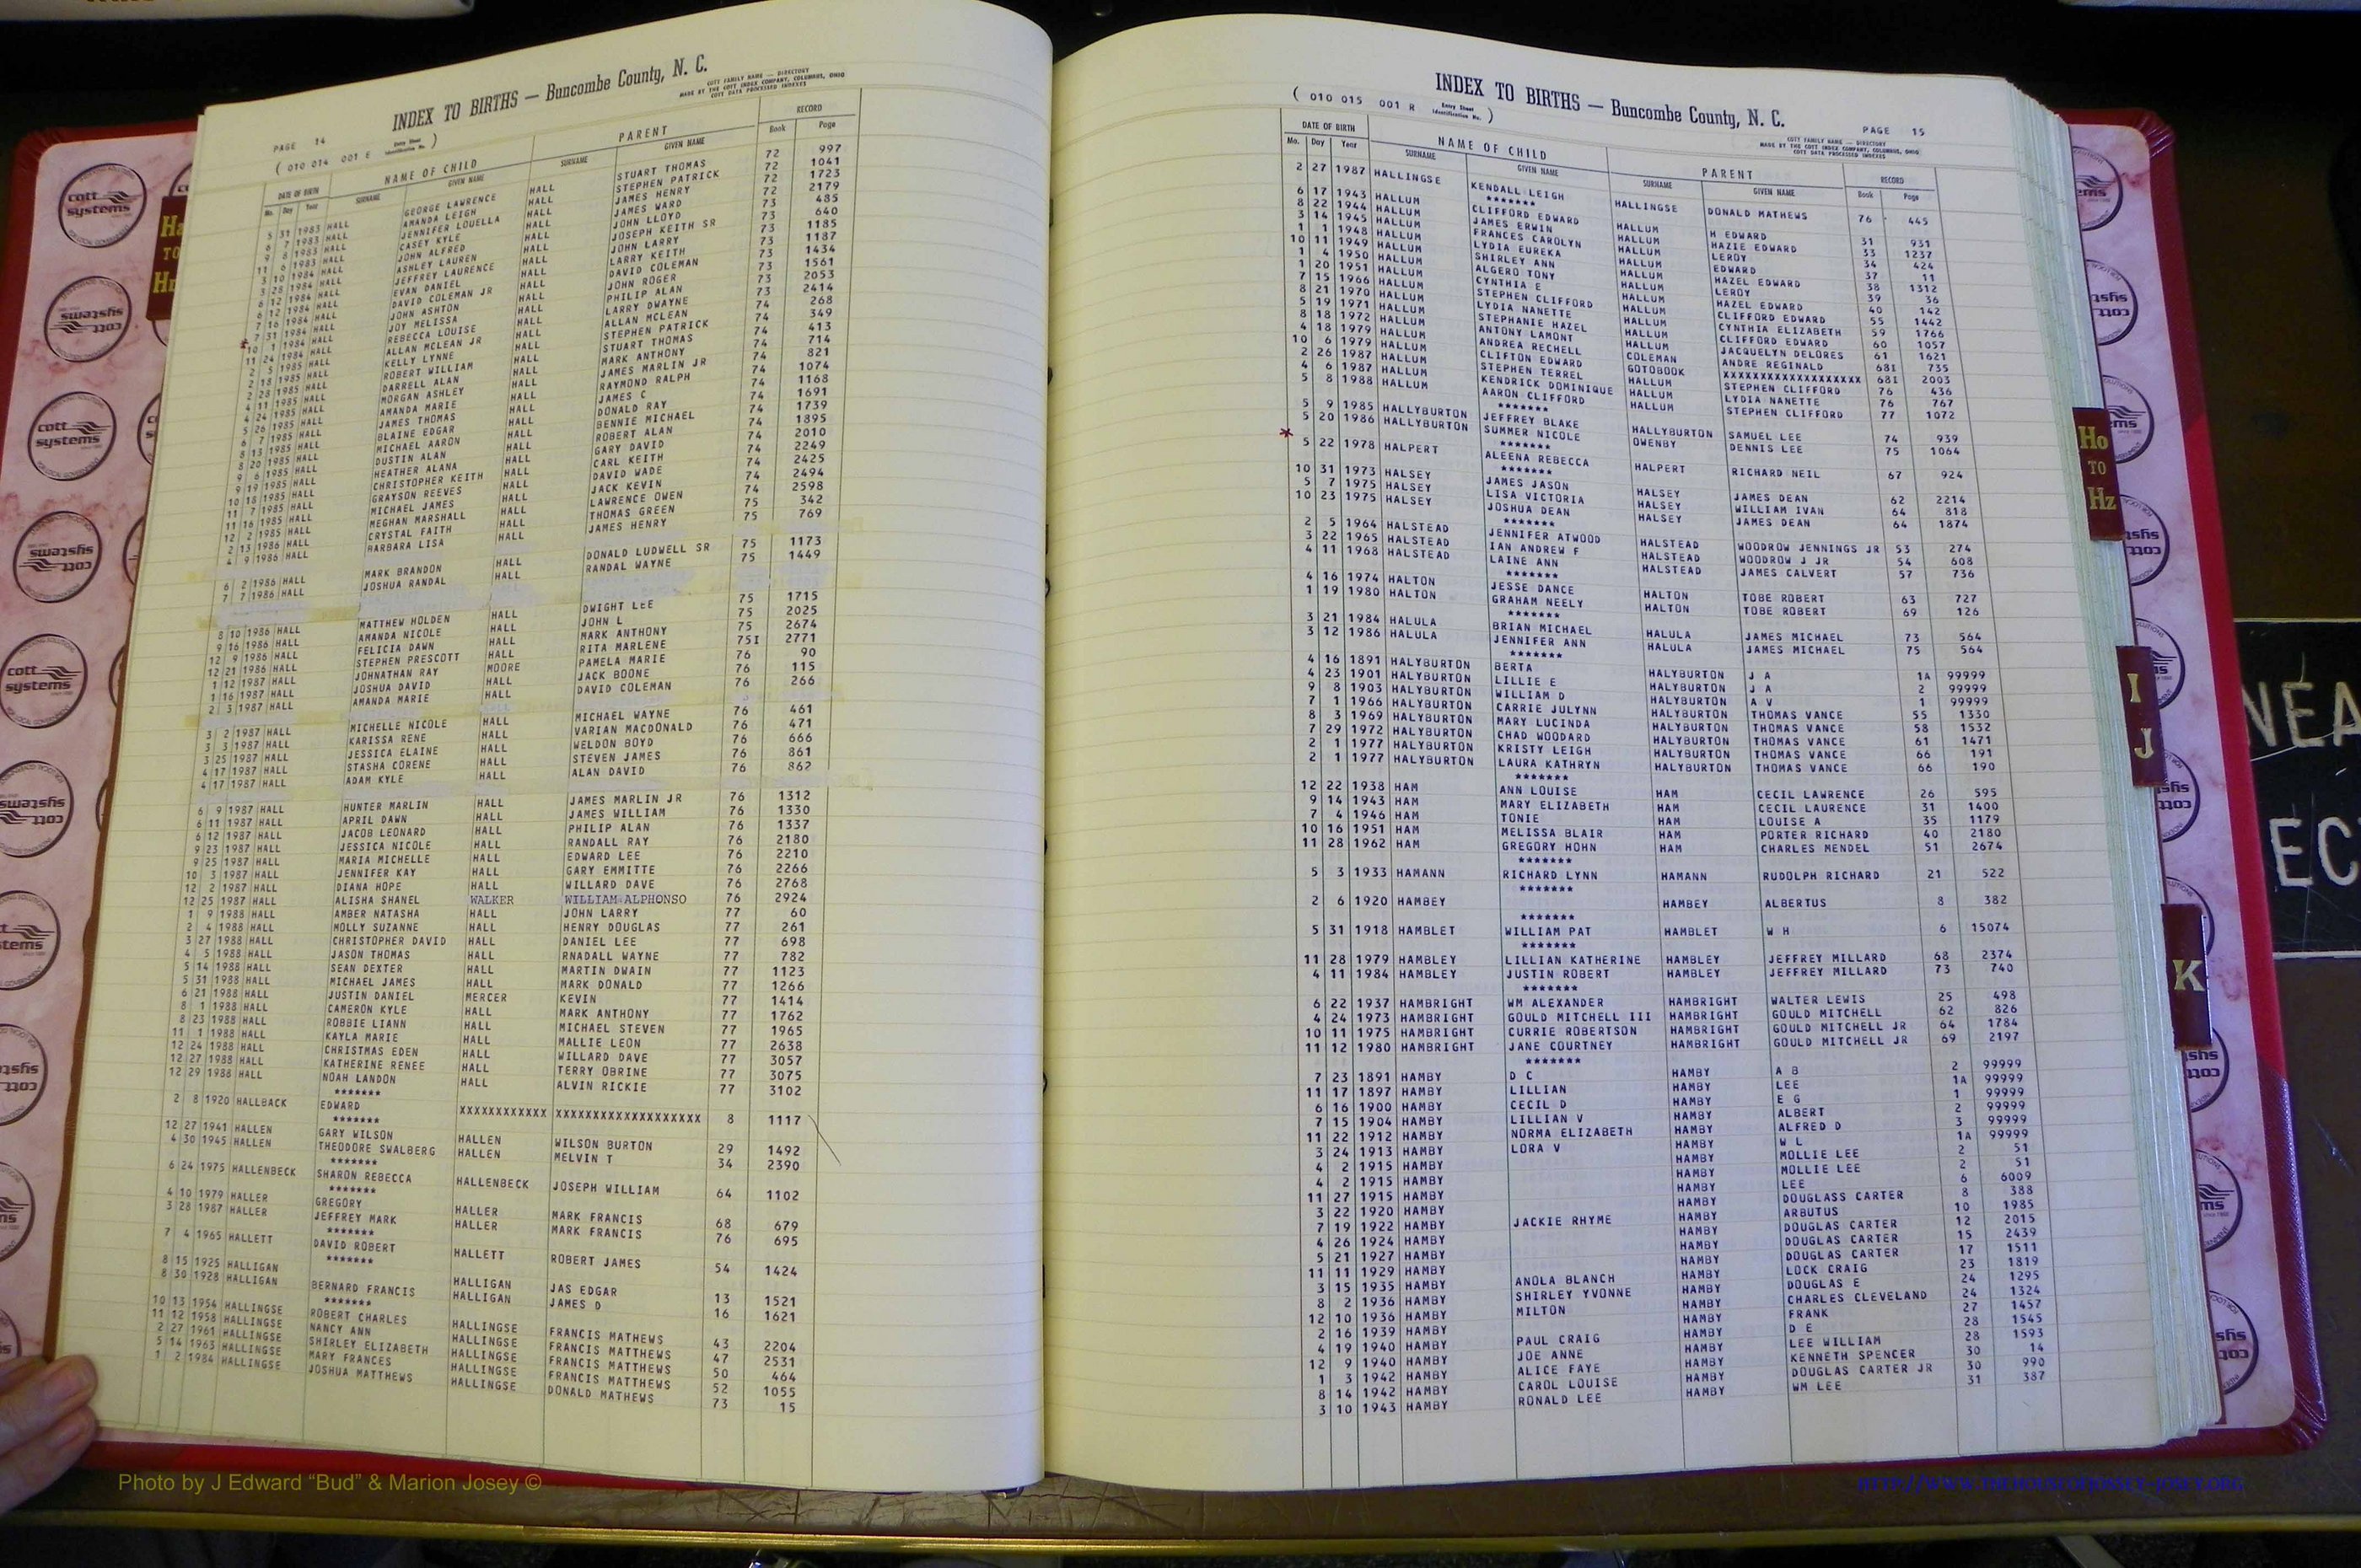 INDEX TO BIRTHS — Buncombe County, N. C.
COTT FAMILY NAME — DIRECTORY
MADE BY THE COTT INDEX COMPANY, COLUMBUS, OHIO
COTT DATA PROCESSED INDEXES
PAGE 14
( 010 014 001 E Entry Sheet Identification No. )
DATE OF BIRTH NAME OF CHILD PARENT RECORD
Mo. Day Year SURNAME GIVEN NAME SURNAME GIVEN NAME Book Page
5 31 1983 HALL GEORGE LAWRENCE HALL STUART THOMAS 72 997
6 7 1983 HALL AMANDA LEIGH HALL STEPHEN PATRICK 72 1041
9 8 1983 HALL JENNIFER LOUELLA HALL JAMES HENRY 72 1723
11 6 1983 HALL CASEY KYLE HALL JAMES WARD 72 2179
3 10 1984 HALL JOHN ALFRED HALL JOHN LLOYD 73 485
3 28 1984 HALL ASHLEY LAUREN HALL JOSEPH KEITH SR 73 640
6 12 1984 HALL JEFFREY LAURENCE HALL JOHN LARRY 73 1185
6 12 1984 HALL EVAN DANIEL HALL LARRY KEITH 73 1187
7 16 1984 HALL DAVID COLEMAN JR HALL DAVID COLEMAN 73 1434
7 31 1984 HALL JOHN ASHTON HALL JOHN ROGER 73 1561
* 10 1 1984 HALL JOY MELISSA HALL PHILIP ALAN 73 2053
11 24 1984 HALL REBECCA LOUISE HALL LARRY DWAYNE 73 2414
2 5 1985 HALL ALLAN MCLEAN JR HALL ALLAN MCLEAN 74 268
2 18 1985 HALL KELLY LYNNE HALL STEPHEN PATRICK 74 349
2 28 1985 HALL ROBERT WILLIAM HALL STUART THOMAS 74 413
4 11 1985 HALL DARRELL ALAN HALL MARK ANTHONY 74 714
4 24 1985 HALL MORGAN ASHLEY HALL JAMES MARLIN JR 74 821
5 26 1985 HALL AMANDA MARIE HALL RAYMOND RALPH 74 1074
6 7 1985 HALL JAMES THOMAS HALL JAMES C 74 1168
8 13 1985 HALL BLAINE EDGAR HALL DONALD RAY 74 1691
8 20 1985 HALL MICHAEL AARON HALL BENNIE MICHAEL 74 1739
9 6 1985 HALL DUSTIN ALAN HALL ROBERT ALAN 74 1895
9 19 1985 HALL HEATHER ALANA HALL GARY DAVID 74 2010
10 18 1985 HALL CHRISTOPHER KEITH HALL CARL KEITH 74 2249
11 7 1985 HALL GRAYSON REEVES HALL DAVID WADE 74 2425
11 16 1985 HALL MICHAEL JAMES HALL JACK KEVIN 74 2494
12 2 1985 HALL MEGHAN MARSHALL HALL LAWRENCE OWEN 74 2598
2 13 1986 HALL CRYSTAL FAITH HALL THOMAS GREEN 75 342
4 9 1986 HALL BARBARA LISA HALL JAMES HENRY 75 769
6 2 1986 HALL MARK BRANDON HALL DONALD LUDWELL SR 75 1173
7 7 1986 HALL JOSHUA RANDAL HALL RANDAL WAYNE 75 1449
8 10 1986 HALL MATTHEW HOLDEN HALL DWIGHT LEE 75 1715
9 16 1986 HALL AMANDA NICOLE HALL JOHN L 75 2025
12 9 1986 HALL FELICIA DAWN HALL MARK ANTHONY 75 2674
12 21 1986 HALL STEPHEN PRESCOTT HALL RITA MARLENE 75I 2771
1 12 1987 HALL JOHNATHAN RAY MOORE PAMELA MARIE 76 90
1 16 1987 HALL JOSHUA DAVID HALL JACK BOONE 76 115
2 3 1987 HALL AMANDA MARIE HALL DAVID COLEMAN 76 266
3 2 1987 HALL MICHELLE NICOLE HALL MICHAEL WAYNE 76 461
3 3 1987 HALL KARISSA RENE HALL VARIAN MACDONALD 76 471
3 25 1987 HALL JESSICA ELAINE HALL WELDON BOYD 76 666
4 17 1987 HALL STASHA CORENE HALL STEVEN JAMES 76 861
4 17 1987 HALL ADAM KYLE HALL ALAN DAVID 76 862
6 9 1987 HALL HUNTER MARLIN HALL JAMES MARLIN JR 76 1312
6 11 1987 HALL APRIL DAWN HALL JAMES WILLIAM 76 1330
6 12 1987 HALL JACOB LEONARD HALL PHILIP ALAN 76 1337
9 23 1987 HALL JESSICA NICOLE HALL RANDALL RAY 76 2180
9 25 1987 HALL MARIA MICHELLE HALL EDWARD LEE 76 2210
10 3 1987 HALL JENNIFER KAY HALL GARY EMMITTE 76 2266
12 2 1987 HALL DIANA HOPE HALL WILLARD DAVE 76 2768
12 25 1987 HALL ALISHA SHANEL WALKER WILLIAM ALPHONSO 76 2924
1 9 1988 HALL AMBER NATASHA HALL JOHN LARRY 77 60
2 4 1988 HALL MOLLY SUZANNE HALL HENRY DOUGLAS 77 261
3 27 1988 HALL CHRISTOPHER DAVID HALL DANIEL LEE 77 698
4 5 1988 HALL JASON THOMAS HALL RNADALL WAYNE 77 782
5 14 1988 HALL SEAN DEXTER HALL MARTIN DWAIN 77 1123
5 31 1988 HALL MICHAEL JAMES HALL MARK DONALD 77 1266
6 21 1988 HALL JUSTIN DANIEL MERCER KEVIN 77 1414
8 1 1988 HALL CAMERON KYLE HALL MARK ANTHONY 77 1762
8 23 1988 HALL ROBBIE LIANN HALL MICHAEL STEVEN 77 1965
11 1 1988 HALL KAYLA MARIE HALL MALLIE LEON 77 2638
12 24 1988 HALL CHRISTMAS EDEN HALL WILLARD DAVE 77 3057
12 27 1988 HALL KATHERINE RENEE HALL TERRY OBRINE 77 3075
12 29 1988 HALL NOAH LANDON HALL ALVIN RICKIE 77 3102
*******
2 8 1920 HALLBACK EDWARD XXXXXXXXXXXX XXXXXXXXXXXXXXXXXXXX 8 1117
*******
12 27 1941 HALLEN GARY WILSON HALLEN WILSON BURTON 29 1492
4 30 1945 HALLEN THEODORE SWALBERG HALLEN MELVIN T 34 2390
*******
6 24 1975 HALLENBECK SHARON REBECCA HALLENBECK JOSEPH WILLIAM 64 1102
*******
4 10 1979 HALLER GREGORY HALLER MARK FRANCIS 68 679
3 28 1987 HALLER JEFFREY MARK HALLER MARK FRANCIS 76 695
*******
7 4 1965 HALLETT DAVID ROBERT HALLETT ROBERT JAMES 54 1424
*******
8 15 1925 HALLIGAN HALLIGAN JAS EDGAR 13 1521
8 30 1928 HALLIGAN BERNARD FRANCIS HALLIGAN JAMES D 16 1621
*******
10 13 1954 HALLINGSE ROBERT CHARLES HALLINGSE FRANCIS MATHEWS 43 2204
11 12 1958 HALLINGSE NANCY ANN HALLINGSE FRANCIS MATTHEWS 47 2531
2 27 1961 HALLINGSE SHIRLEY ELIZABETH HALLINGSE FRANCIS MATTHEWS 50 464
5 14 1963 HALLINGSE MARY FRANCES HALLINGSE FRANCIS MATTHEWS 52 1055
1 2 1984 HALLINGSE JOSHUA MATTHEWS HALLINGSE DONALD MATHEWS 73 15
INDEX TO BIRTHS — Buncombe County, N. C.
( 010 015 001 R Entry Sheet Identification No. )
PAGE 15
COTT FAMILY NAME — DIRECTORY
MADE BY THE COTT INDEX COMPANY, COLUMBUS, OHIO
COTT DATA PROCESSED INDEXES
DATE OF BIRTH NAME OF CHILD PARENT RECORD
Mo. Day Year SURNAME GIVEN NAME SURNAME GIVEN NAME Book Page
2 27 1987 HALLINGSE KENDALL LEIGH HALLINGSE DONALD MATHEWS 76 445
*******
6 17 1943 HALLUM CLIFFORD EDWARD HALLUM H EDWARD 31 931
8 22 1944 HALLUM JAMES ERWIN HALLUM HAZIE EDWARD 33 1237
3 14 1945 HALLUM FRANCES CAROLYN HALLUM LEROY 34 424
1 1 1948 HALLUM LYDIA EUREKA HALLUM EDWARD 37 11
10 11 1949 HALLUM SHIRLEY ANN HALLUM HAZEL EDWARD 38 1312
1 4 1950 HALLUM ALGERO TONY HALLUM LEROY 39 36
1 20 1951 HALLUM CYNTHIA E HALLUM HAZEL EDWARD 40 142
7 15 1966 HALLUM STEPHEN CLIFFORD HALLUM CLIFFORD EDWARD 55 1442
8 21 1970 HALLUM LYDIA NANETTE HALLUM CYNTHIA ELIZABETH 59 1766
5 19 1971 HALLUM STEPHANIE HAZEL HALLUM CLIFFORD EDWARD 60 1057
8 18 1972 HALLUM ANTONY LAMONT HALLUM JACQUELYN DELORES 61 1621
4 18 1979 HALLUM ANDREA RECHELL COLEMAN ANDRE REGINALD 68I 735
10 6 1979 HALLUM CLIFTON EDWARD GOTOBOOK XXXXXXXXXXXXXXXXXXXX 68I 2003
2 26 1987 HALLUM STEPHEN TERREL HALLUM STEPHEN CLIFFORD 76 436
4 6 1987 HALLUM KENDRICK DOMINIQUE HALLUM LYDIA NANETTE 76 767
5 8 1988 HALLUM AARON CLIFFORD HALLUM STEPHEN CLIFFORD 77 1072
*******
5 9 1985 HALLYBURTON JEFFREY BLAKE HALLYBURTON SAMUEL LEE 74 939
* 5 20 1986 HALLYBURTON SUMMER NICOLE OWENBY DENNIS LEE 75 1064
*******
5 22 1978 HALPERT ALEENA REBECCA HALPERT RICHARD NEIL 67 924
*******
10 31 1973 HALSEY JAMES JASON HALSEY JAMES DEAN 62 2214
5 7 1975 HALSEY LISA VICTORIA HALSEY WILLIAM IVAN 64 818
10 23 1975 HALSEY JOSHUA DEAN HALSEY JAMES DEAN 64 1874
*******
2 5 1964 HALSTEAD JENNIFER ATWOOD HALSTEAD WOODROW JENNINGS JR 53 274
3 22 1965 HALSTEAD IAN ANDREW F HALSTEAD WOODROW J JR 54 608
4 11 1968 HALSTEAD LAINE ANN HALSTEAD JAMES CALVERT 57 736
*******
4 16 1974 HALTON JESSE DANCE HALTON TOBE ROBERT 63 727
1 19 1980 HALTON GRAHAM NEELY HALTON TOBE ROBERT 69 126
*******
3 21 1984 HALULA BRIAN MICHAEL HALULA JAMES MICHAEL 73 564
3 12 1986 HALULA JENNIFER ANN HALULA JAMES MICHAEL 75 564
*******
4 16 1891 HALYBURTON BERTA HALYBURTON J A 1A 99999
4 23 1901 HALYBURTON LILLIE E HALYBURTON J A 2 99999
9 8 1903 HALYBURTON WILLIAM D HALYBURTON A V 1 99999
7 1 1966 HALYBURTON CARRIE JULYNN HALYBURTON THOMAS VANCE 55 1330
8 3 1969 HALYBURTON MARY LUCINDA HALYBURTON THOMAS VANCE 58 1532
7 29 1972 HALYBURTON CHAD WOODARD HALYBURTON THOMAS VANCE 61 1471
2 1 1977 HALYBURTON KRISTY LEIGH HALYBURTON THOMAS VANCE 66 191
2 1 1977 HALYBURTON LAURA KATHRYN HALYBURTON THOMAS VANCE 66 190
*******
12 22 1938 HAM ANN LOUISE HAM CECIL LAWRENCE 26 595
9 14 1943 HAM MARY ELIZABETH HAM CECIL LAURENCE 31 1400
7 4 1946 HAM TONIE HAM LOUISE A 35 1179
10 16 1951 HAM MELISSA BLAIR HAM PORTER RICHARD 40 2180
11 28 1962 HAM GREGORY HOHN HAM CHARLES MENDEL 51 2674
*******
5 3 1933 HAMANN RICHARD LYNN HAMANN RUDOLPH RICHARD 21 522
*******
2 6 1920 HAMBEY HAMBEY ALBERTUS 8 382
*******
5 31 1918 HAMBLET WILLIAM PAT HAMBLET W H 6 15074
*******
11 28 1979 HAMBLEY LILLIAN KATHERINE HAMBLEY JEFFREY MILLARD 68 2374
4 11 1984 HAMBLEY JUSTIN ROBERT HAMBLEY JEFFREY MILLARD 73 740
*******
6 22 1937 HAMBRIGHT WM ALEXANDER HAMBRIGHT WALTER LEWIS 25 498
4 24 1973 HAMBRIGHT GOULD MITCHELL III HAMBRIGHT GOULD MITCHELL 62 826
10 11 1975 HAMBRIGHT CURRIE ROBERTSON HAMBRIGHT GOULD MITCHELL JR 64 1784
11 12 1980 HAMBRIGHT JANE COURTNEY HAMBRIGHT GOULD MITCHELL JR 69 2197
*******
7 23 1891 HAMBY D C HAMBY A B 2 99999
11 17 1897 HAMBY LILLIAN HAMBY LEE 1A 99999
6 16 1900 HAMBY CECIL D HAMBY E G 1 99999
7 15 1904 HAMBY LILLIAN V HAMBY ALBERT 2 99999
11 22 1912 HAMBY NORMA ELIZABETH HAMBY ALFRED D 3 99999
3 24 1913 HAMBY LORA V HAMBY W L 1A 99999
4 2 1915 HAMBY HAMBY MOLLIE LEE 2 51
4 2 1915 HAMBY HAMBY MOLLIE LEE 2 51
11 27 1915 HAMBY HAMBY LEE 6 6009
3 22 1920 HAMBY HAMBY DOUGLASS CARTER 8 388
7 19 1922 HAMBY JACKIE RHYME HAMBY ARBUTUS 10 1985
4 26 1924 HAMBY HAMBY DOUGLAS CARTER 12 2015
5 21 1927 HAMBY HAMBY DOUGLAS CARTER 15 2439
11 11 1929 HAMBY HAMBY DOUGLAS CARTER 17 1511
3 15 1935 HAMBY ANOLA BLANCH HAMBY LOCK CRAIG 23 1819
8 2 1936 HAMBY SHIRLEY YVONNE HAMBY DOUGLAS E 24 1295
12 10 1936 HAMBY MILTON HAMBY CHARLES CLEVELAND 24 1324
2 16 1939 HAMBY HAMBY FRANK 27 1457
4 19 1940 HAMBY PAUL CRAIG HAMBY D E 28 1545
12 9 1940 HAMBY JOE ANNE HAMBY LEE WILLIAM 28 1593
1 3 1942 HAMBY ALICE FAYE HAMBY KENNETH SPENCER 30 14
8 14 1942 HAMBY CAROL LOUISE HAMBY DOUGLAS CARTER JR 30 990
3 10 1943 HAMBY RONALD LEE HAMBY WM LEE 31 387
Ho TO Hz
I J
K
cott systems
Photo by J Edward “Bud” & Marion Josey ©
HTTP://WWW.THEHOUSEOFJOSSEY-JOSEY.ORG